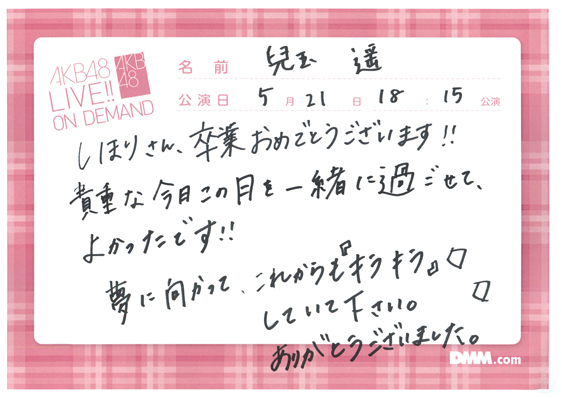 AKB48
LIVE!!
ON DEMAND
AKB
48
名前 兒玉 遥
公演日 5月21日 18:15公演
しほりさん、卒業おめでとうございます!!
貴重な今日この日を一緒に過ごせて、
よかったです!!
夢に向かって、これからも『キラキラ』
していて下さい。
ありがとうございました。
DMM.com